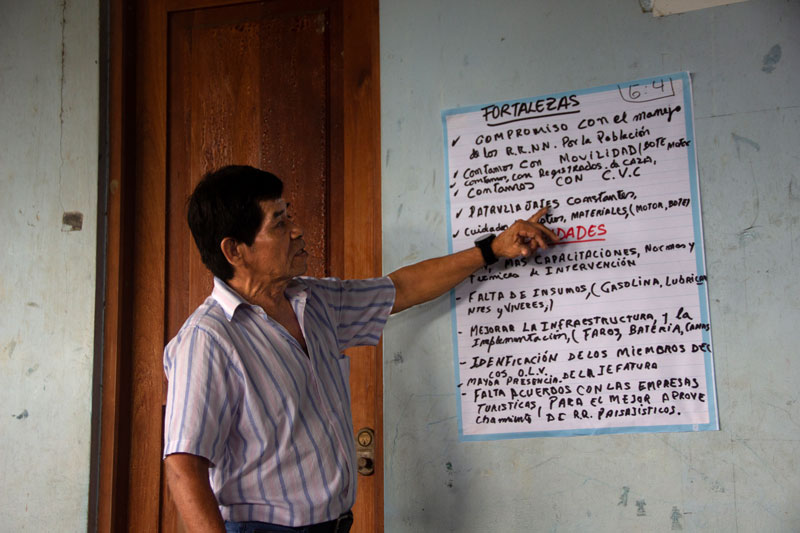 6:4
FORTALEZAS
✓ COMPROMISO CON el manejo
de los R.R.N.N. Por la Población
✓ Contamos con MOVILIDAD (BOTE MOTOR
✓ Contamos, con REGISTRADOS de CAZA,
✓ CONTAMOS CON C.V.C
✓ PATRULLAJES Constantes,
✓ Cuidado MATERIALES, (MOTOR, BOTE)
MAS CAPACITACIONES, Normas y
Técnicas de INTERVENCIÓN
- FALTA DE INSUMOS, (GASOLINA, LUBRICAN
NTES y VIVERES,)
- MEJORAR LA INFRAESTRUCTURA, y la
Implementación, (FAROS, BATERÍA, CAMAS
- IDENFICACIÓN DE LOS MIEMBROS DEL
LOS O.L.V.
- MAYOR PRESENCIA. DE LA JEFATURA
- FALTA ACUERDOS CON LAS EMPRESAS
TURISTICAS, PARA EL MEJOR APROVE
Chamiento, DE RR. PAISAJÍSTICOS.